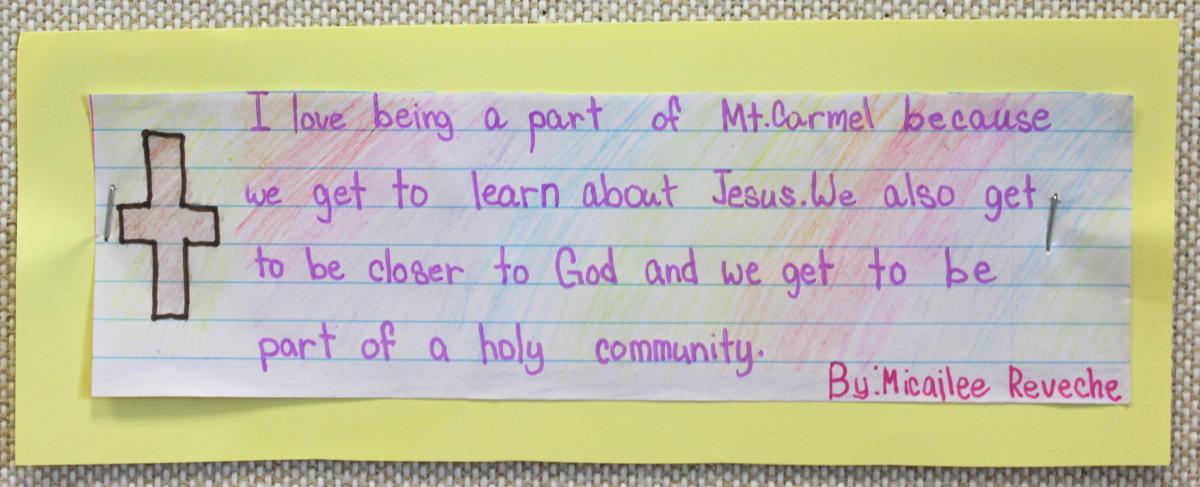 I love being a part of Mt.Carmel because
we get to learn about Jesus.We also get
to be closer to God and we get to be
part of a holy community.
By:Micailee Reveche